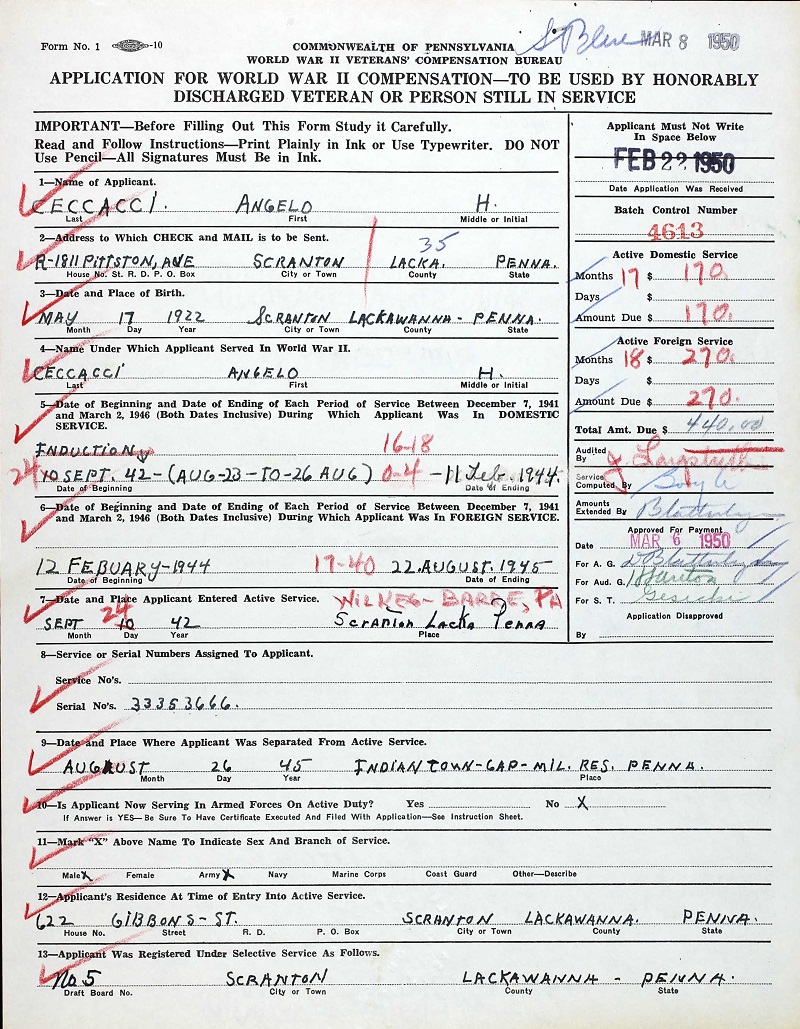 Form No. 1 -10
COMMONWEALTH OF PENNSYLVANIA
MAR 8 1950
WORLD WAR II VETERANS' COMPENSATION BUREAU
APPLICATION FOR WORLD WAR II COMPENSATION—TO BE USED BY HONORABLY
DISCHARGED VETERAN OR PERSON STILL IN SERVICE
IMPORTANT—Before Filling Out This Form Study it Carefully.
Read and Follow Instructions—Print Plainly in Ink or Use Typewriter. DO NOT
Use Pencil—All Signatures Must Be in Ink.
1—Name of Applicant.
CECCACCI. ANGELO H.
Last First Middle or Initial
2—Address to Which CHECK and MAIL is to be Sent.
35
R-1811 PITTSTON, AVE SCRANTON LACKA. PENNA.
House No. St. R. D. P. O. Box City or Town County State
3—Date and Place of Birth.
MAY 17 1922 SCRANTON LACKAWANNA - PENNA.
Month Day Year City or Town County State
4—Name Under Which Applicant Served In World War II.
CECCACCI ANGELO H.
Last First Middle or Initial
5—Date of Beginning and Date of Ending of Each Period of Service Between December 7, 1941
and March 2, 1946 (Both Dates Inclusive) During Which Applicant Was In DOMESTIC
SERVICE.
INDUCTION 16-18
24 10 SEPT. 42-(AUG-23-TO-26 AUG) 0-4 -11 Feb. 1944.
Date of Beginning Date of Ending
6—Date of Beginning and Date of Ending of Each Period of Service Between December 7, 1941
and March 2, 1946 (Both Dates Inclusive) During Which Applicant Was In FOREIGN SERVICE.
12 FEBUARY-1944 17-40 22.AUGUST.1945
Date of Beginning Date of Ending
7—Date and Place Applicant Entered Active Service. WILKES-BARRE, PA
24
SEPT 10 42 Scranton Lacka Penna
Month Day Year Place
8—Service or Serial Numbers Assigned To Applicant.
Service No's.
Serial No's. 33353666.
9—Date and Place Where Applicant Was Separated From Active Service.
AUGAUST 26 45 INDIANTOWN-GAP-MIL. RES. PENNA.
Month Day Year Place
10—Is Applicant Now Serving In Armed Forces On Active Duty? Yes No X
If Answer is YES—Be Sure To Have Certificate Executed And Filed With Application—See Instruction Sheet.
11—Mark "X" Above Name To Indicate Sex and Branch of Service.
Male X Female Army X Navy Marine Corps Coast Guard Other—Describe
12—Applicant's Residence At Time of Entry Into Active Service.
622 GIBBONS-ST. SCRANTON LACKAWANNA. PENNA.
House No. Street R. D. P. O. Box City or Town County State
13—Applicant Was Registered Under Selective Service As Follows.
No. 5 SCRANTON LACKAWANNA - PENNA.
Draft Board No. City or Town County State
Applicant Must Not Write
In Space Below
FEB 22 1950
Date Application Was Received
Batch Control Number
4613
Active Domestic Service
Months 17 $ 170.
Days $
Amount Due $ 170.
Active Foreign Service
Months 18 $ 270.
Days $
Amount Due $ 270.
Total Amt. Due $ 440.00
Audited
By
Service
Computed By
Amounts
Extended By
Approved For Payment
Date MAR 6 1950
For A. G.
For Aud. G.
For S. T.
Application Disapproved
By